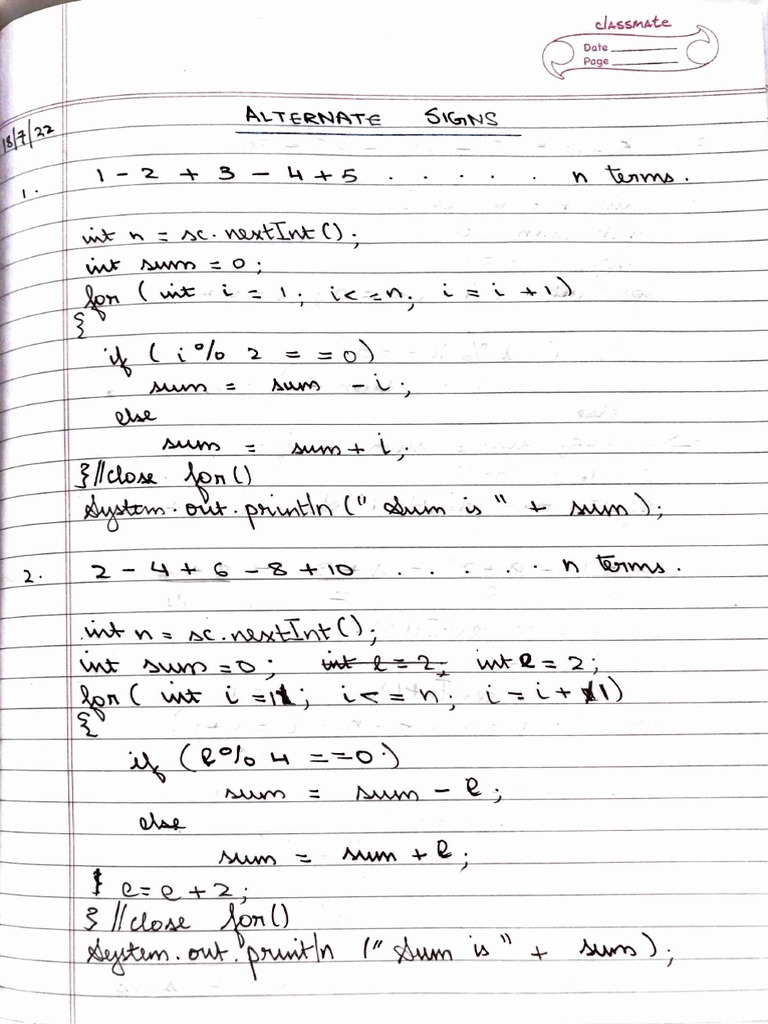 classmate
Date
Page
ALTERNATE SIGNS
18/7/22
1. 1 - 2 + 3 - 4 + 5 . . . . . n terms.
int n = sc.nextInt();
int sum = 0;
for ( int i = 1; i<=n; i = i +1)
{
if ( i % 2 = = 0)
sum = sum - i;
else
sum = sum + i;
}//close for()
System.out.println (" Sum is " + sum );
2. 2 - 4 + 6 - 8 + 10 . . . . . n terms.
int n = sc.nextInt();
int sum = 0; int e = 2; int e = 2;
for ( int i = 1; i <= n; i = i + 1)
{
if (e % 4 = = 0)
sum = sum - e;
else
sum = sum + e;
e = e + 2;
} //close for()
System.out.println (" Sum is " + sum );